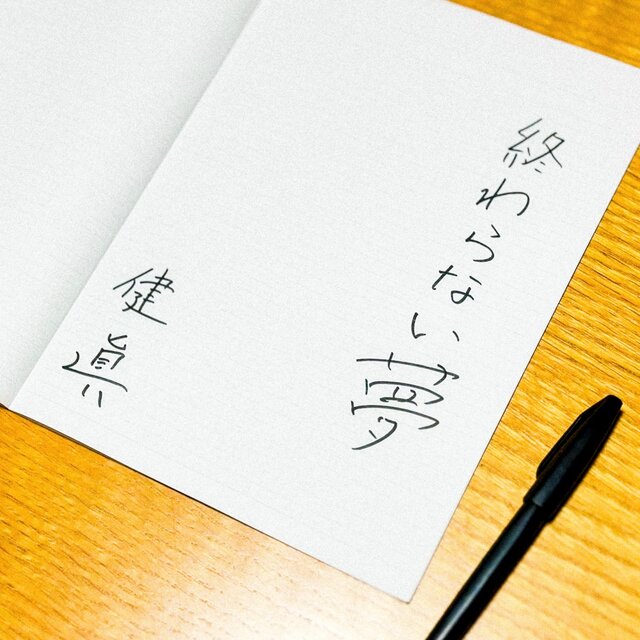 終わらない夢
健真